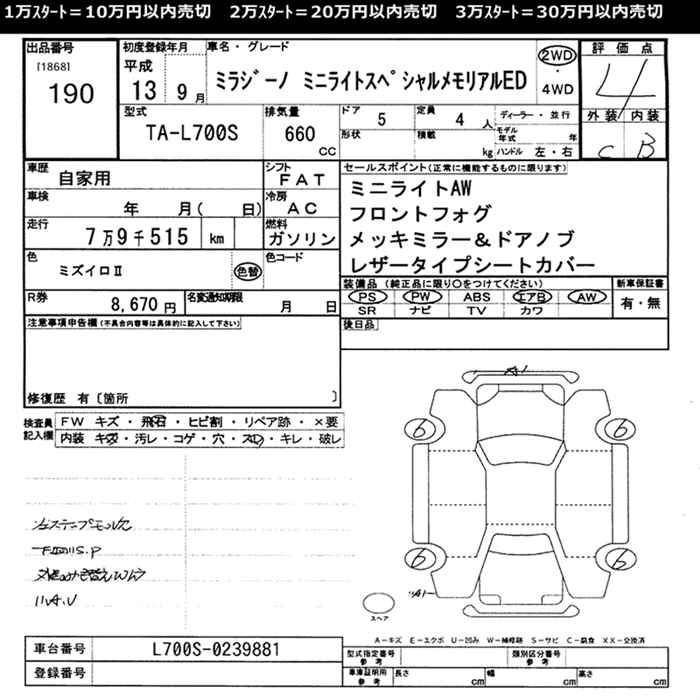 1万スタート＝10万円以内売切　2万スタート＝20万円以内売切　3万スタート＝30万円以内売切
出品番号
[1868]
190
初度登録年月
平成
13 9月
車名・グレード
ミラジーノ ミニライトスペシャルメモリアルED
2WD
・
4WD
評価点
4
外装 内装
C B
型式
TA-L700S
排気量
660
CC
ドア
5
定員
4 人
形状
積載
kg
ディーラー・並行
モデル年式 年
ハンドル 左・右
車歴
自家用
シフト
FAT
車検
年 月( 日)
冷房
AC
走行
7万9千515 km
燃料
ガソリン
色
ミズイロⅡ
色替
色コード
R券
8,670円
名変通知期限
月 日
セールスポイント(正常に機能するものに限ります)
ミニライトAW
フロントフォグ
メッキミラー＆ドアノブ
レザータイプシートカバー
装備品(純正品に限り○をつけてください)
PS PW ABS エアB AW
SR ナビ TV カワ
新車保証書
有・無
後日品
注意事項申告欄(不具合内容等は具体的に記入して下さい)
修復歴 有〔箇所 〕
検査員記入欄
FW キズ・飛石・ヒビ割・リペア跡・×要
内装 キズ・汚レ・コゲ・穴・スレ・キレ・破レ
A1
6 6
6 6
A1
スペア
A－キズ E－エクボ U－凹み W－補修跡 S－サビ C－腐食 XX－交換済
車台番号
L700S-0239881
登録番号
型式指定番号
参考
類別区分番号
参考
車庫証明用
参考
長さ cm
幅 cm
高さ cm